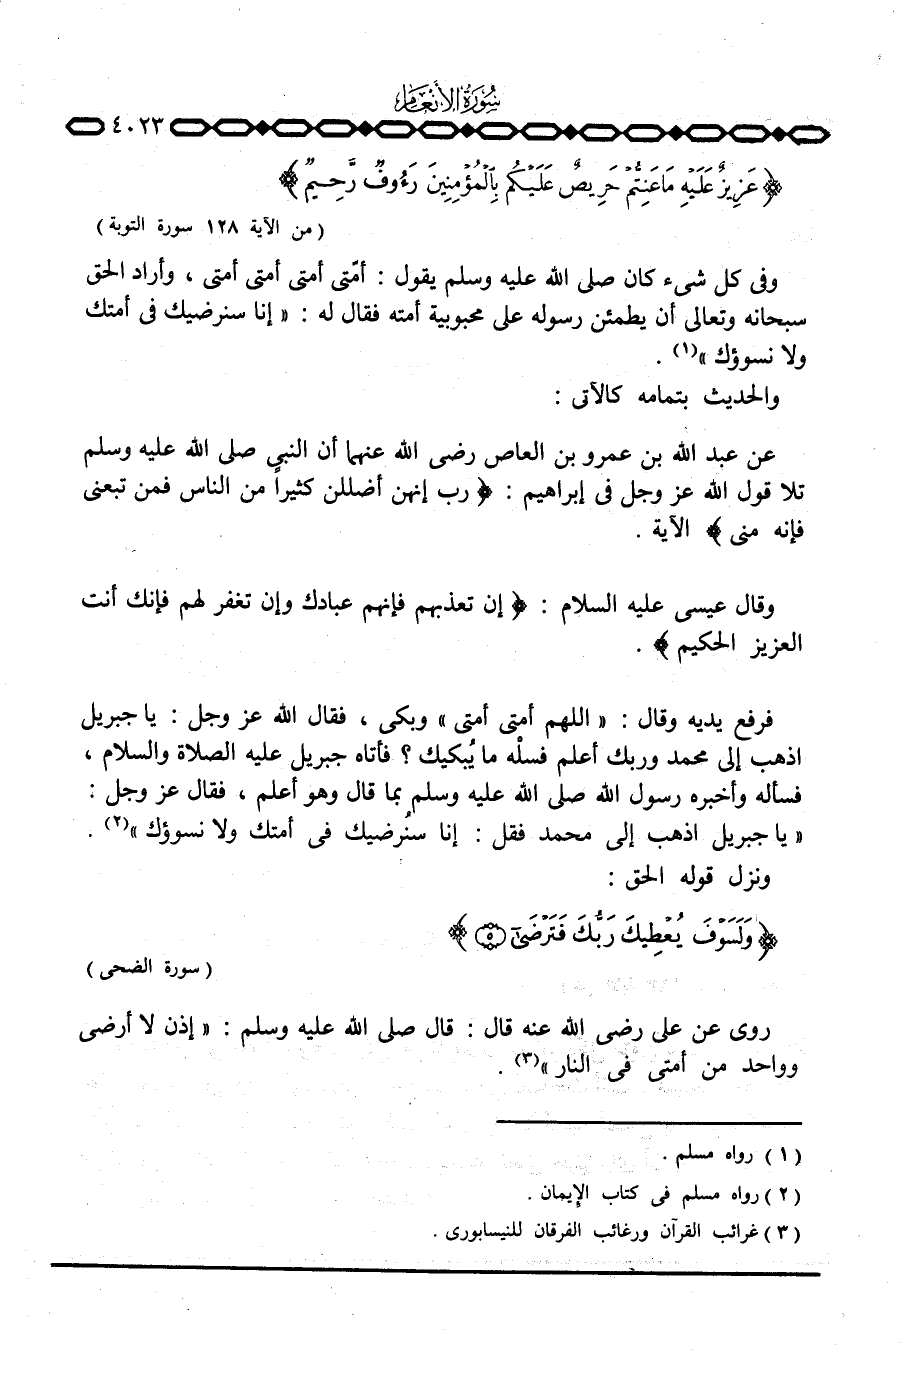 سورة الأنعام
٤٠٢٣
﴿ عَزِيزٌ عَلَيْهِ مَا عَنِتُّمْ حَرِيصٌ عَلَيْكُم بِالْمُؤْمِنِينَ رَءُوفٌ رَّحِيمٌ ﴾
( من الآية ١٢٨ سورة التوبة )
وفى كل شىء كان صلى الله عليه وسلم يقول : أمّتى أمتى أمتى أمتى ، وأراد الحق
سبحانه وتعالى أن يطمئن رسوله على محبوبية أمته فقال له : « إنا سنرضيك فى أمتك
ولا نسوؤك »(١) .
والحديث بتمامه كالآتى :
عن عبد الله بن عمرو بن العاص رضى الله عنهما أن النبي صلى الله عليه وسلم
تلا قول الله عز وجل فى إبراهيم : ﴿ رب إنهن أضللن كثيراً من الناس فمن تبعنى
فإنه منى ﴾ الآية .
وقال عيسى عليه السلام : ﴿ إن تعذبهم فإنهم عبادك وإن تغفر لهم فإنك أنت
العزيز الحكيم ﴾ .
فرفع يديه وقال : « اللهم أمتى أمتى » وبكى ، فقال الله عز وجل : يا جبريل
اذهب إلى محمد وربك أعلم فسلْه ما يُبكيك ؟ فأتاه جبريل عليه الصلاة والسلام ،
فسأله وأخبره رسول الله صلى الله عليه وسلم بما قال وهو أعلم ، فقال عز وجل :
« يا جبريل اذهب إلى محمد فقل : إنا سنُرضيك فى أمتك ولا نسوؤك »(٢) .
ونزل قوله الحق :
﴿ وَلَسَوْفَ يُعْطِيكَ رَبُّكَ فَتَرْضَىٰٓ ٥ ﴾
( سورة الضحى )
روى عن على رضى الله عنه قال : قال صلى الله عليه وسلم : « إذن لا أرضى
وواحد من أمتى فى النار »(٣) .
( ١ ) رواه مسلم .
( ٢ ) رواه مسلم فى كتاب الإيمان .
( ٣ ) غرائب القرآن ورغائب الفرقان للنيسابورى .